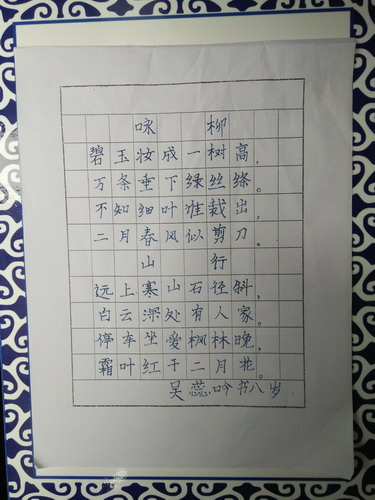 咏柳
碧玉妆成一树高，
万条垂下绿丝绦。
不知细叶谁裁出，
二月春风似剪刀。
山行
远上寒山石径斜，
白云深处有人家。
停车坐爱枫林晚，
霜叶红于二月花。
吴蕊吟书八岁